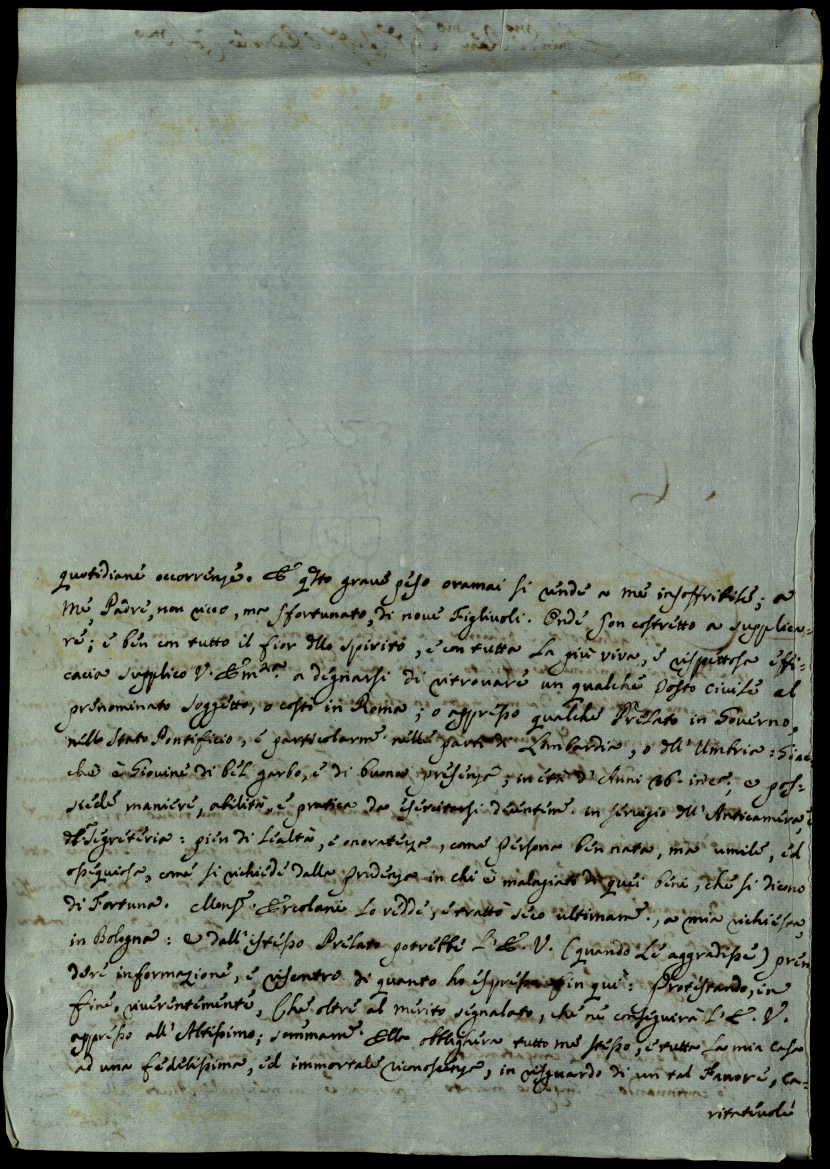 quotidiane occorrenze. E qsto grave peso oramai si rende a me insoffribile; a
me, Padre, non ricco, ma sfortunato, di nove Figlivoli. Onde son costretto a supplica=
re; e ben con tutto il fior dllo spirito, e con tutta la più viva, e rispettosa effi=
cacia supplico V. Emza a degnarsi di ritrovare un qualche Posto civile al
prenominato soggetto, o costì in Roma; o appresso qualche Prelato in Governo,
nello Stato Pontificio, e particolarme nelle parti di Lombardia, o dll'Umbria: Giac=
che è Giovine di bel garbo, e di buona presenza; in età d'Anni 26. in ca; e pos=
siede maniere, abilità, e pratica da esercitarsi decenteme. in servigio dll'Anticamera e
di Segreteria: pien di Lealtà, e onoratezza, come Persona ben nata, ma umile, ed
ossequiosa, come si richiede dalla prudenza in chi è malagiato di quei beni, che si dicono
di Fortuna. Monsr. Ercolani Lo vedde, e trattò seco ultimame., a mia richiesta,
in Bologna: e dall'istesso Prelato potrebbe l'E. V. (quando Le aggradisse) pren
dere informazione, e riscontro di quanto ho espresso fin quì: Protestando, in
fine, riverentemente, Che oltre al merito segnalato, che ne conseguirà l'E. V.
appresso all'Altissimo; sommame. Ella obbligherà tutto me stesso, e tutta la mia Casa
ad una fedelissima, ed immortale riconoscenza, in risguardo di un tal Favore, Ca=
ritatevole